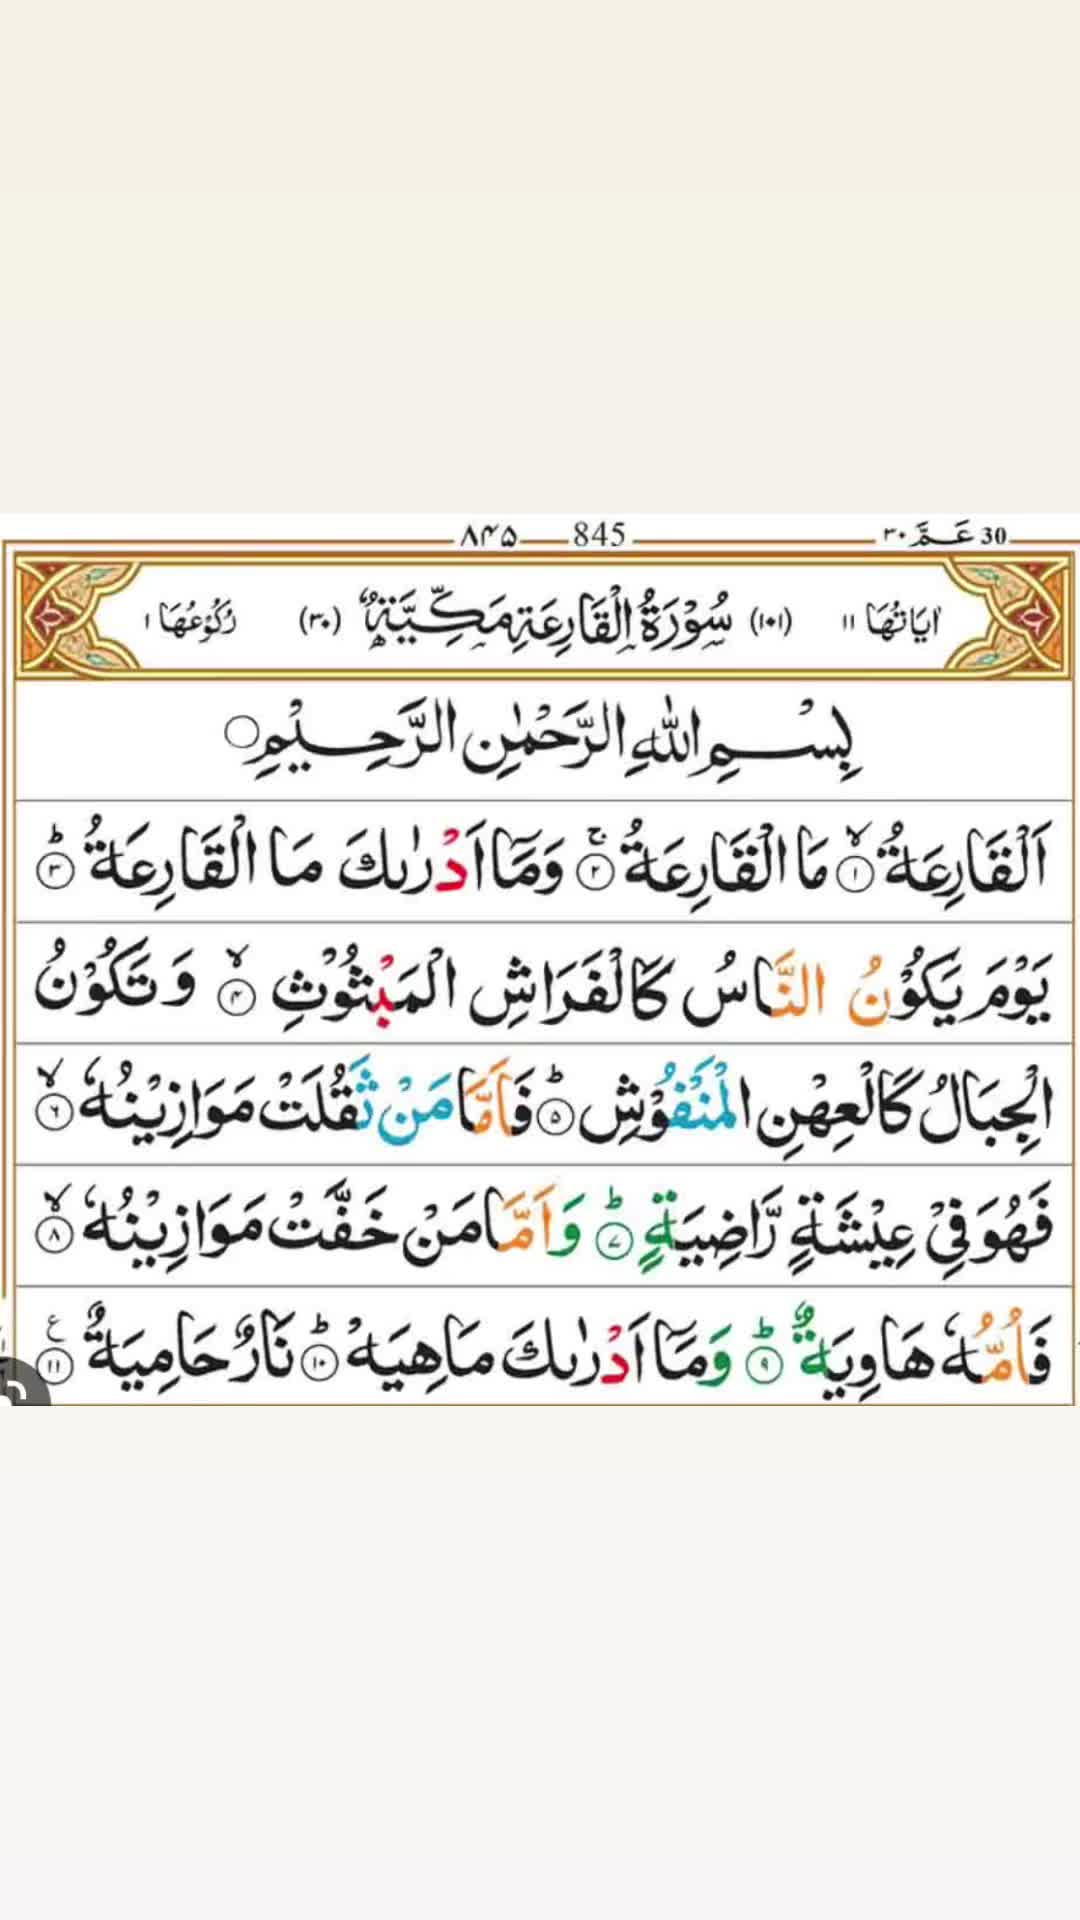 ۸۴۵ — 845 — عَمَّ ۳۰ 30
اٰيَاتُهَا ١١ (١٠١) سُوْرَةُ الْقَارِعَةِ مَكِّيَّةٌ (٣٠) رُكُوْعُهَا ١
بِسْمِ اللّٰهِ الرَّحْمٰنِ الرَّحِيْمِ
اَلْقَارِعَةُ ۙ‏ ١ مَا الْقَارِعَةُ ۚ‏ ٢ وَمَاۤ اَدْرٰىكَ مَا الْقَارِعَةُ ؕ‏ ٣
يَوْمَ يَكُوْنُ النَّاسُ كَالْفَرَاشِ الْمَبْثُوْثِ ۙ‏ ۴ وَ تَكُوْنُ
الْجِبَالُ كَالْعِهْنِ الْمَنْفُوْشِ ؕ‏ ۵ فَاَمَّا مَنْ ثَقُلَتْ مَوَازِيْنُهٗ ۙ‏ ۶
فَهُوَ فِيْ عِيْشَةٍ رَّاضِيَةٍ ؕ‏ ۷ وَاَمَّا مَنْ خَفَّتْ مَوَازِيْنُهٗ ۙ‏ ٨
فَاُمُّهٗ هَاوِيَةٌ ؕ‏ ٩ وَمَاۤ اَدْرٰىكَ مَا هِيَهْ ؕ‏ ١٠ نَارٌ حَامِيَةٌ ١١ ع